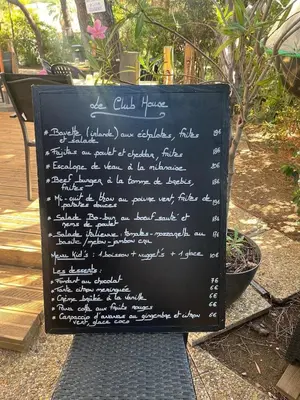 Le Club House
* Bavette (irlande) aux échalotes, frites 19€
et salade
* Fajitas au poulet et cheddar, frites 18€
* Escalope de veau à la milanaise
* Beef burger à la tomme de brebis,
frites
* Mi-cuit de thon au poivre vert, frites de
patates douces
* Salade Bo-bun au boeuf sauté et
nems de poulet
* Salade italienne: tomates-mozzarella au
basilic / melon-jambon cru
Menu Kid's : 1 boisson + nugget's + 1 glace 10€
Les desserts:
* Fondant au chocolat 7€
* Tarte citron meringuée 6€
* Crème brûlée à la vanille 6€
* Pana cota aux fruits rouges 6€
* Carpaccio d'ananas au gingembre et citron 6€
vert, glace coco